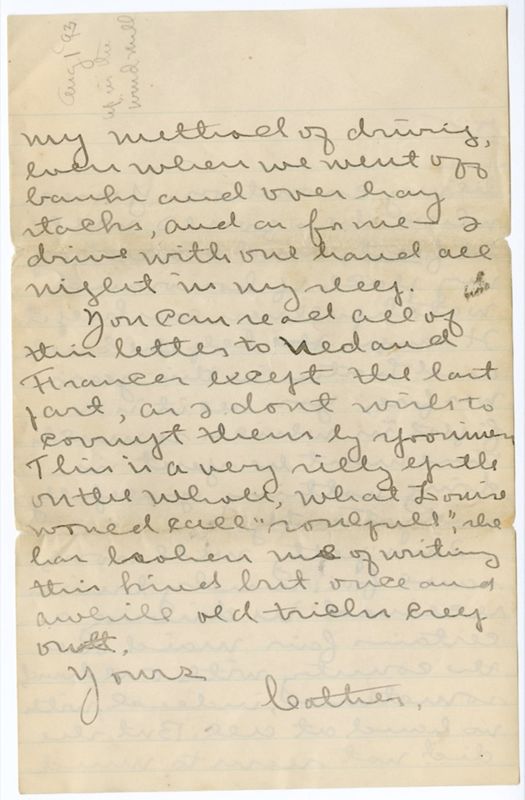 Aug 1 '93
up in the
wind mill
my method of driving,
even when we went off
banks and over hay
stacks, and as for me - I
drive with one hand all
night in my sleep.
You can read all of
this letter to Ned and
Frances except the last
part, as I dont wish to
corrupt them by
This is a very silly epistle
on the whole, what Louise
would call "soulful", she
has broken me of writing
this kind but once and
awhile old tricks creep
out.
Yours
Cather.